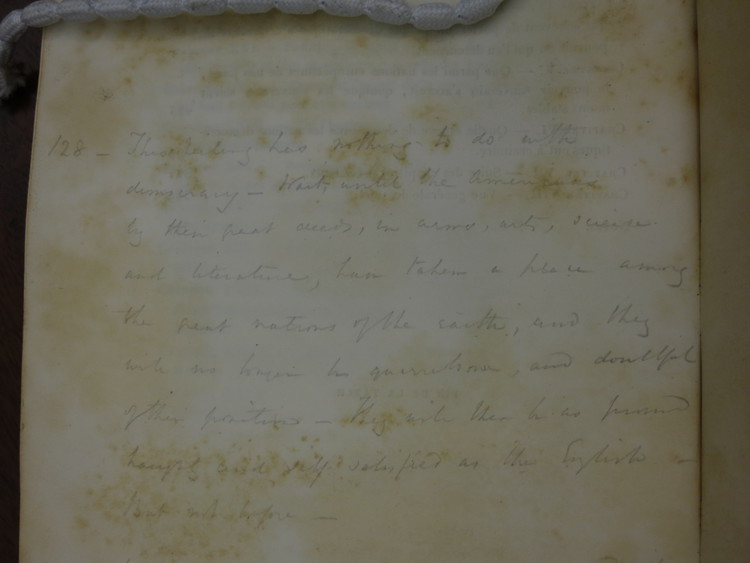 128 - This feeling has nothing to do with
democracy - Wait until the Americans
by their great deeds, in arms, arts, science
and literature, have taken a place among
the great nations of the earth, and they
will no longer be quarrelsome, and doubtful
of their position - they will then be as proud
haughty and self satisfied as the English -
But not before -